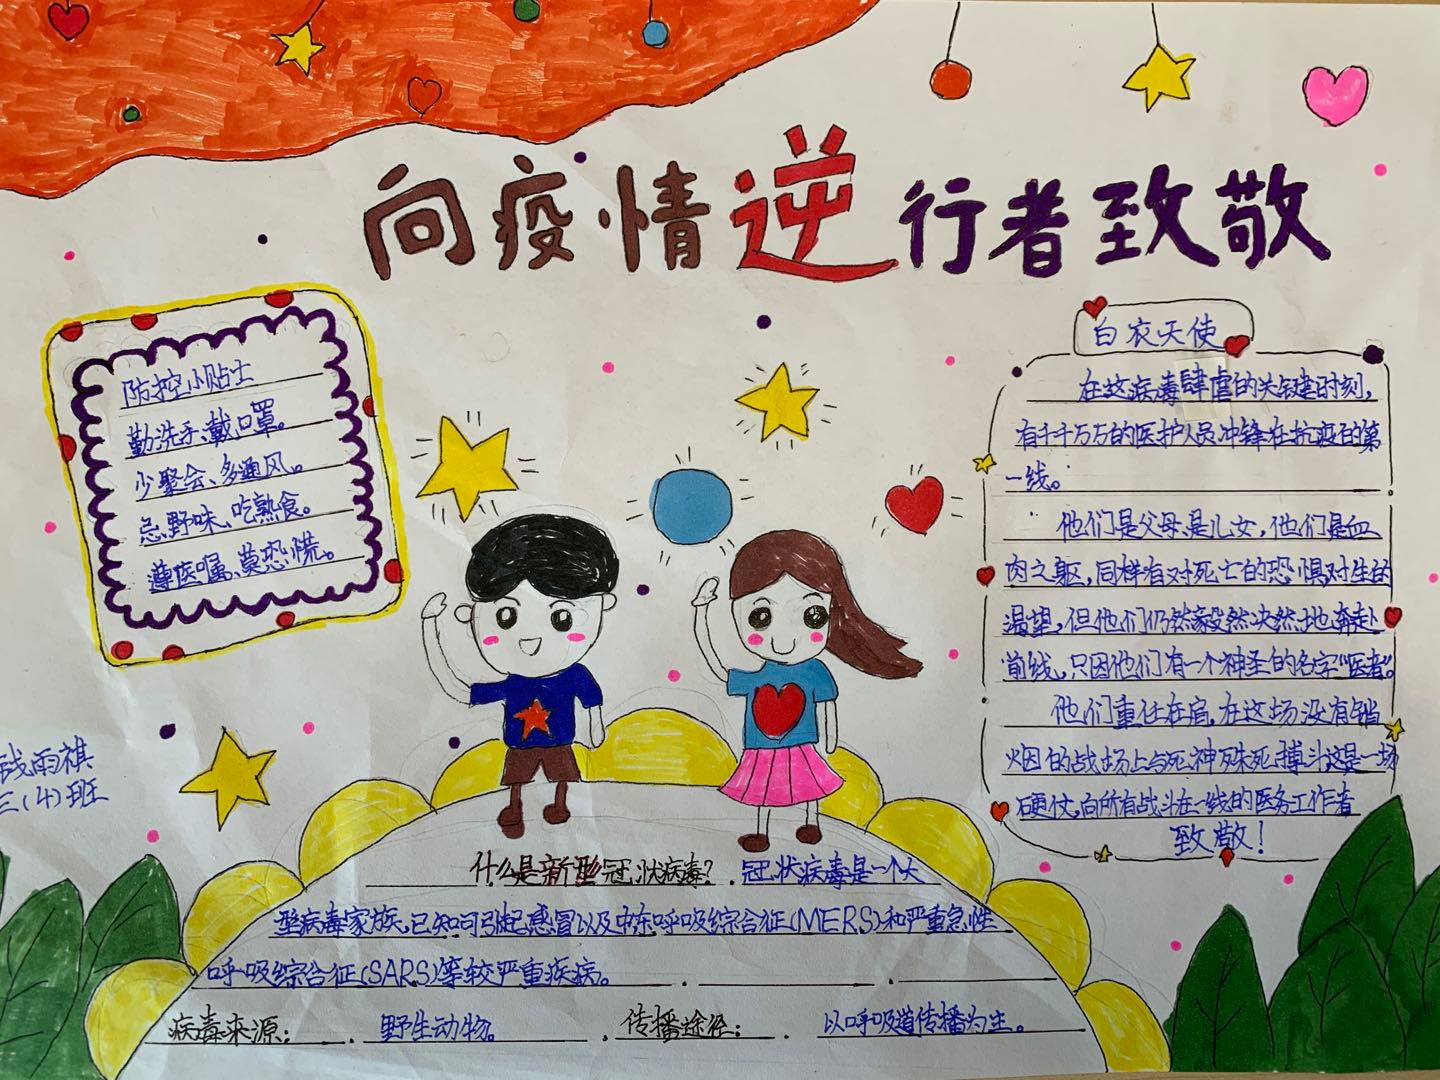 向疫情逆行者致敬
防控小贴士
勤洗手、戴口罩。
少聚会、多通风。
忌野味、吃熟食。
遵医嘱、莫恐慌。
白衣天使
在这病毒肆虐的关键时刻,
有千千万万的医护人员冲锋在抗疫的第
一线。
他们是父母、是儿女,他们是血
肉之躯,同样有对死亡的恐惧,对生的
渴望,但他们仍然毅然决然地奔赴
前线,只因他们有一个神圣的名字"医者"。
他们重任在肩,在这场没有销
烟的战场上与死神殊死搏斗这是一场
硬仗,向所有战斗在一线的医务工作者
致敬!
钱雨祺
三(4)班
什么是新型冠状病毒? 冠状病毒是一个大
型病毒家族,已知可引起感冒以及中东呼吸综合征(MERS)和严重急性
呼吸综合征(SARS)等较严重疾病。
病毒来源: 野生动物。 传播途径: 以呼吸道传播为主。